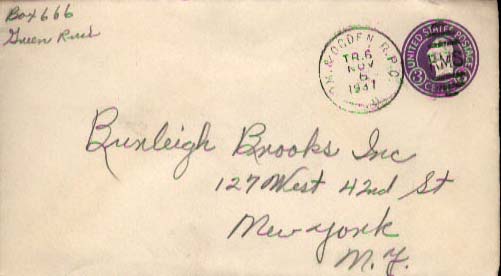 Box 666
Green River
& OGDEN R.P.O.
TR. 6
NOV
5
1941
UNITED STATES POSTAGE
3 CENTS 3
RMS
Burleigh Brooks Inc
127 West 42nd St
New York
N.Y.